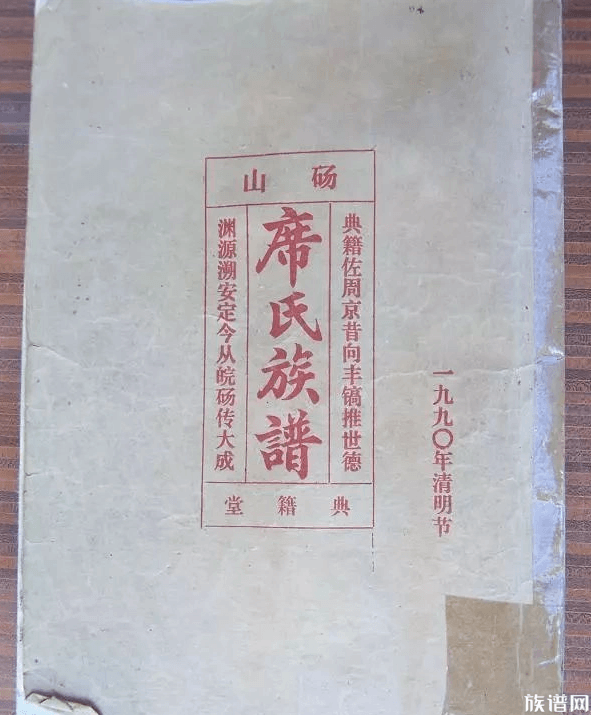 砀山
典籍佐周京昔向丰镐推世德
席氏族譜
渊源溯安定今从皖砀传大成
典籍堂
一九九〇年清明节
族谱网